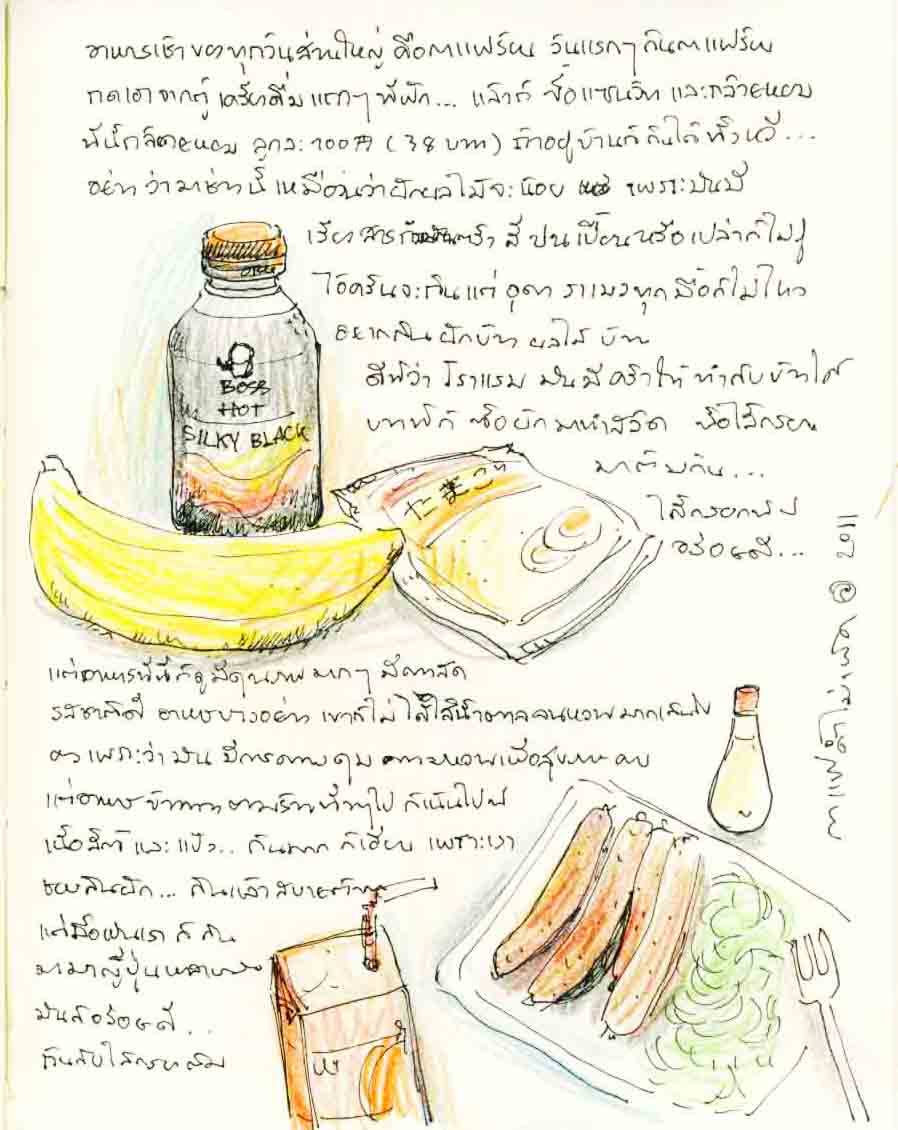 อาหารเช้าของทุกวันส่วนใหญ่ คือกาแฟร้อน วันแรกๆ กินกาแฟร้อน
กดเอาจากตู้ เครื่องดื่ม แถกๆ ที่พัก... แล้วก็ ซื้อแซนวิท และกล้วยหอม
ที่นี่กล้วยหอม ลูกละ 100 (38 บาท) ถ้าอยู่บ้านก็กินได้ทั้งหวี...
อย่าว่า มาช่วงนี้ เหมือนว่าผักผลไม้จะน้อย เพราะมันมี
เรื่อง สี ปนเปื้อนหรือเปล่าก็ไม่รู้
ไอ้ครั้นจะกินแต่ อุด้ง ราเมงทุกมื้อก็ไม่ไหว
อยากกินผักบ้าง ผลไม้ บ้าง
ดีที่ว่า โรงแรม มันมีครัวให้ ทำกับข้าวได้
บางทีก็ ซื้อผักมาทำสลัด ซื้อไส้กรอก
มาต้มกิน...
ไส้กรอกที่นี่
อร่อยดี...
BOSS
HOT
SILKY BLACK
แต่อาหารที่นี่ก็ดูมีคุณภาพ มากๆ มีความสด
รสชาติดี อาหารบางอย่าง เขาก็ไม่ได้ใส่น้ำตาลจนหวานมากเกินไป
เพราะว่ามัน มีการควบคุม ความหวานเพื่อสุขภาพ
แต่อาหาร ตามร้านทั่วๆไป ก็เน้นไปที่
เนื้อสัตว์ และ แป้ง.. กินมาก ก็เลี่ยน เพราะเรา
ชอบกินผัก... กินแล้วสบายท้อง
แต่มื้อ เรา ก็ กิน
มาม่าญี่ปุ่น
มันก็อร่อยดี...
กินกับไส้กรอก
กาแฟดำไม่เผ็ด @ 2011